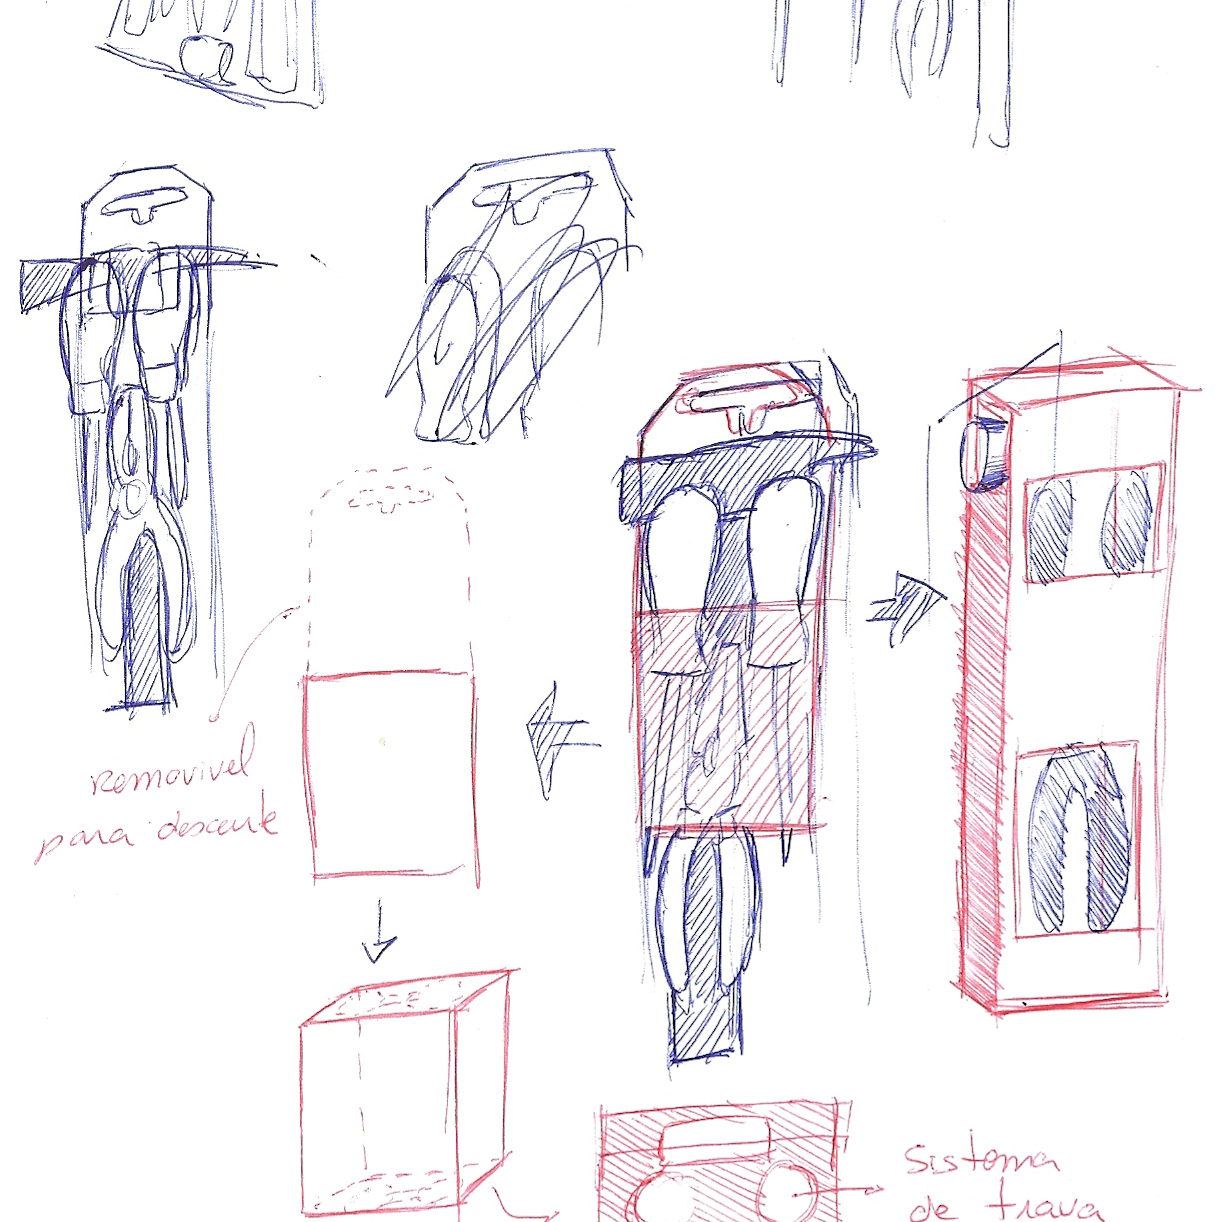 Removivel
para descarte
Sistema
de trava